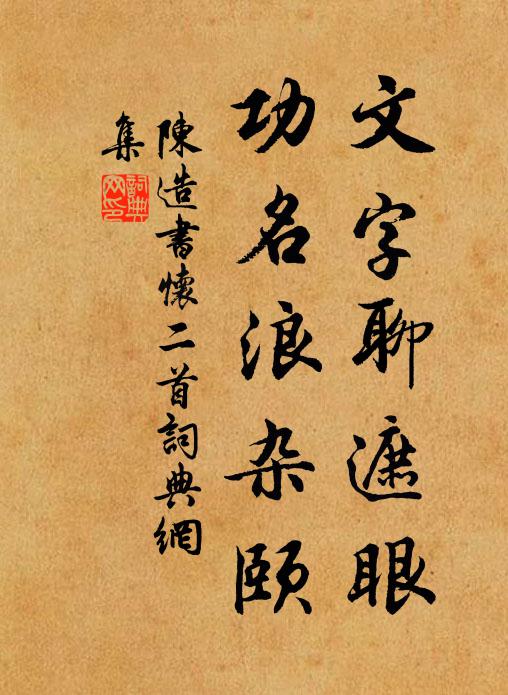 文字聊遮眼
功名浪杂颐
陳造書懷二首詞典網
集
詞典
网印